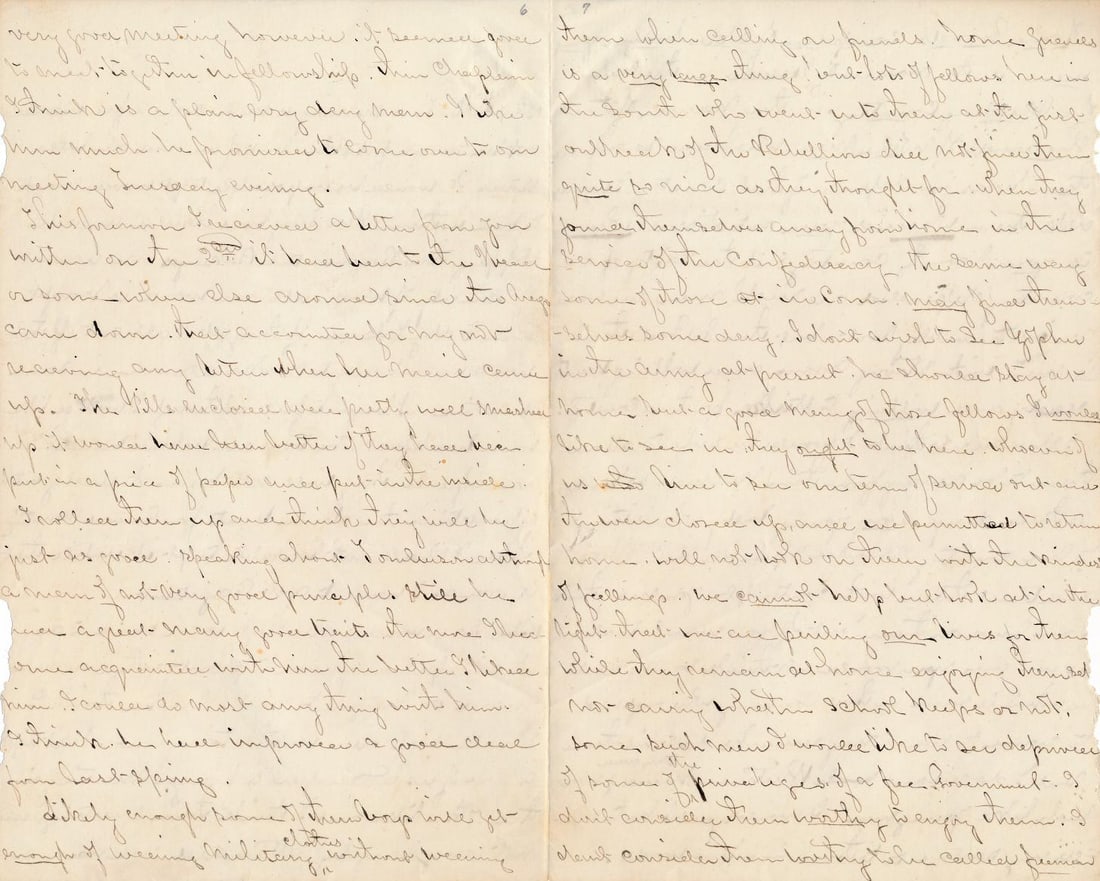 6
very good meeting however. it seemed good
to meet together in fellowship. Their Chaplain
I think is a plain every day man. I like
him much he promised to come over to our
meeting Tuesday evening.
This forenoon I recieved a letter from you
written on the 2nd it had been to the Head
or some where else around since the Brags
came down. that accounted for my not
recieving any letter when her mail came
up. The Pills enclosed were pretty well smashed
up it would have been better if they had been
put in a piece of paper and put in the inside.
I rolled them up and think they will be
just as good. speaking about Tomlinson although
a man of not very good principles still he
had a great many good traits. the more I bec-
ome acquainted with him the better I liked
him. I could do most any thing with him.
I think he had improved a good deal
from last spring.
Likely enough some of them boys will get
enough of wearing Military clothes without wearing
7
them when calling on friends. Home Guards
is a very large thing! but lots of fellows here in
the South who went into them at the first
outbreak of the Rebellion did not find them
quite so nice as they thought for. When they
found themselves away from home in the
service of the Confederacy. the same way
some of those at in Conn. may find them-
-selves some day. I don't wish to see Gopher
in the army at present. he should stay at
home. but a good many of those fellows I would
like to see in. they ought to be here. whoever of
us live to see our term of service out and
the war closed up, and we permitted to return
home. will not look on them with the kindest
of feelings. we cannot help but look at in the
light that we are periling our lives for them
while they remain at home enjoying themsel
not caring whether School keeps or not.
some such men I would like to see deprived
of some of the privileges of a free Government. I
don't consider them worthy to enjoy them. I
dont consider them worthy to be called freeman